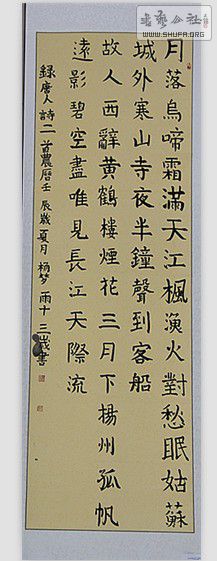 书艺公社
WWW.SHUFA.ORG
月落烏啼霜滿天江楓漁火對愁眠姑蘇
城外寒山寺夜半鐘聲到客船
故人西辭黄鶴樓煙花三月下楊州孤帆
遠影碧空盡唯見長江天際流
録唐人詩二首農曆壬辰歲夏月楊梦雨十三歲書